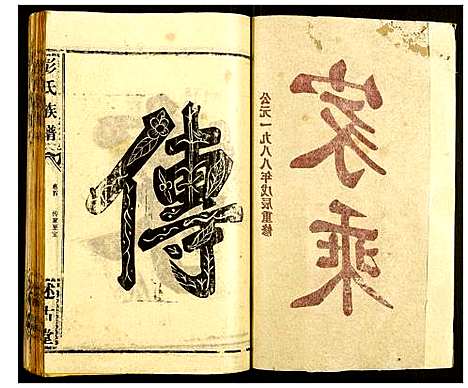 家乘
公元一九八八年戊辰重修
傳
彭氏族譜
卷首
述古堂